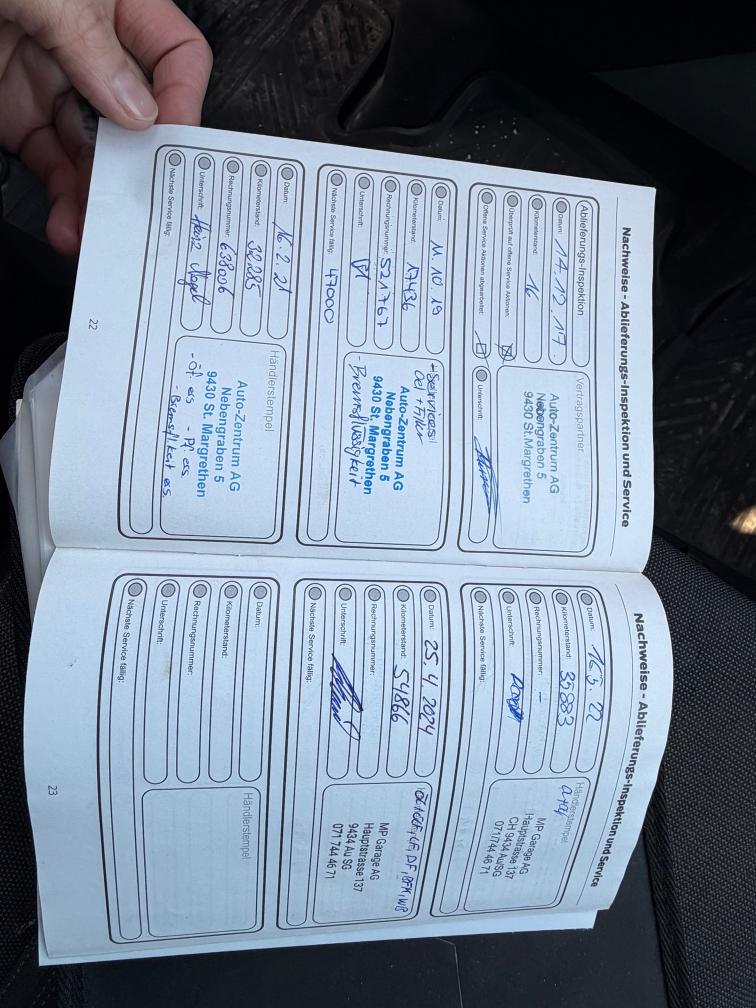 Nachweise - Ablieferungs-Inspektion und Service
Ablieferungs-Inspektion
Datum: 14.12.17
Kilometerstand: 16
Überprüft auf offene Service Aktionen:
Offene Service Aktionen abgearbeitet:
Vertragspartner
Auto-Zentrum AG
Nebengraben 5
9430 St.Margrethen
Unterschrift:
Datum: 11.10.19
Kilometerstand: 17436
Rechnungsnummer: 521767
Unterschrift:
Nächste Service fällig: 47000
Oel + Filter
Auto-Zentrum AG
Nebengraben 5
9430 St. Margrethen
- Bremsflüssigkeit
Datum: 16.2.21
Kilometerstand: 32285
Rechnungsnummer: 638006
Unterschrift:
Nächste Service fällig:
Händlerstempel
Auto-Zentrum AG
Nebengraben 5
9430 St. Margrethen
22
Nachweise - Ablieferungs-Inspektion und Service
Datum: 16.5.22
Kilometerstand: 35883
Rechnungsnummer: -
Unterschrift:
Nächste Service fällig:
Händlerstempel
MP Garage AG
Hauptstrasse 137
CH 9434 Au/SG
071/744 46 71
Datum: 25.4.2024
Kilometerstand: 54866
Rechnungsnummer:
Unterschrift:
Nächste Service fällig:
MP Garage AG
Hauptstrasse 137
9434 Au SG
071 744 46 71
Datum:
Kilometerstand:
Rechnungsnummer:
Unterschrift:
Nächste Service fällig:
Händlerstempel
23